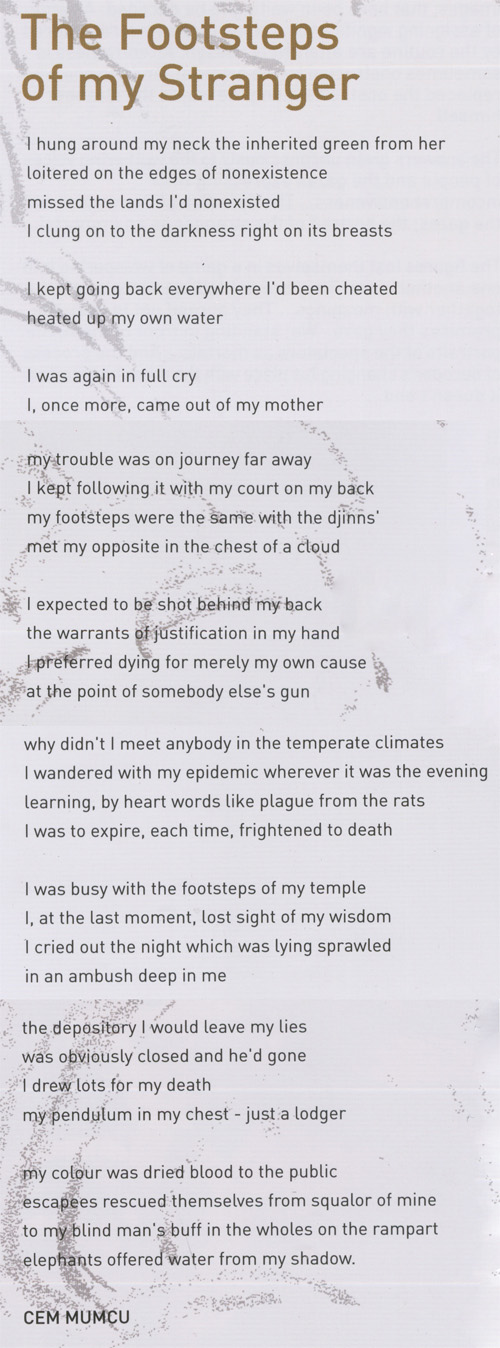 The Footsteps
of my Stranger
I hung around my neck the inherited green from her
loitered on the edges of nonexistence
missed the lands I'd nonexisted
I clung on to the darkness right on its breasts
I kept going back everywhere I'd been cheated
heated up my own water
I was again in full cry
I, once more, came out of my mother
my trouble was on journey far away
I kept following it with my court on my back
my footsteps were the same with the djinns'
met my opposite in the chest of a cloud
I expected to be shot behind my back
the warrants of justification in my hand
I preferred dying for merely my own cause
at the point of somebody else's gun
why didn't I meet anybody in the temperate climates
I wandered with my epidemic wherever it was the evening
learning, by heart words like plague from the rats
I was to expire, each time, frightened to death
I was busy with the footsteps of my temple
I, at the last moment, lost sight of my wisdom
I cried out the night which was lying sprawled
in an ambush deep in me
the depository I would leave my lies
was obviously closed and he'd gone
I drew lots for my death
my pendulum in my chest - just a lodger
my colour was dried blood to the public
escapees rescued themselves from squalor of mine
to my blind man's buff in the wholes on the rampart
elephants offered water from my shadow.
CEM MUMCU